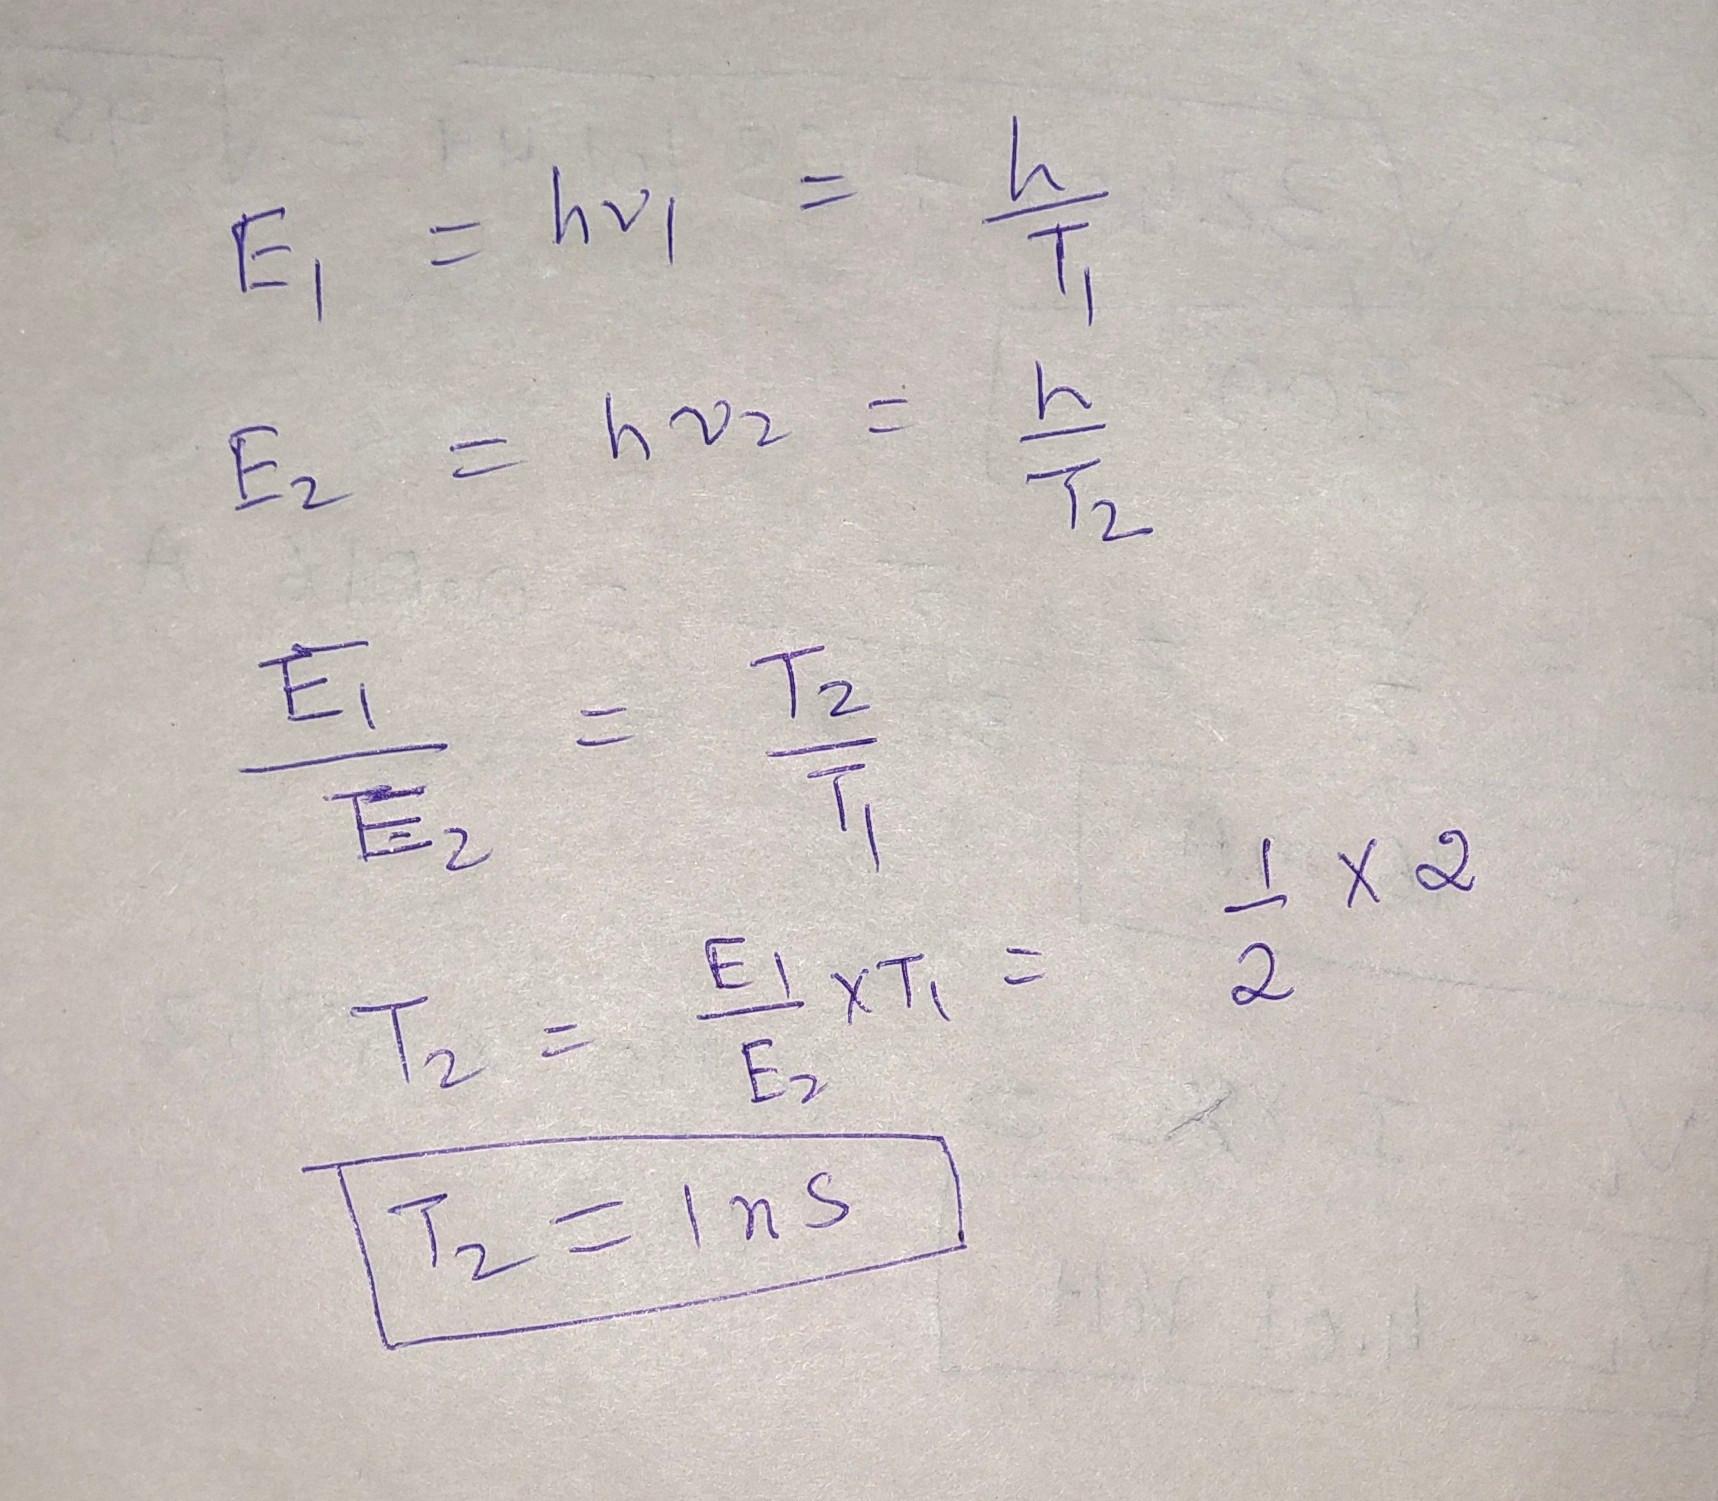 E₁ = hν₁ = h/T₁
E₂ = hν₂ = h/T₂
E₁/E₂ = T₂/T₁
T₂ = E₁/E₂ × T₁ = 1/2 × 2
T₂ = 1 ns